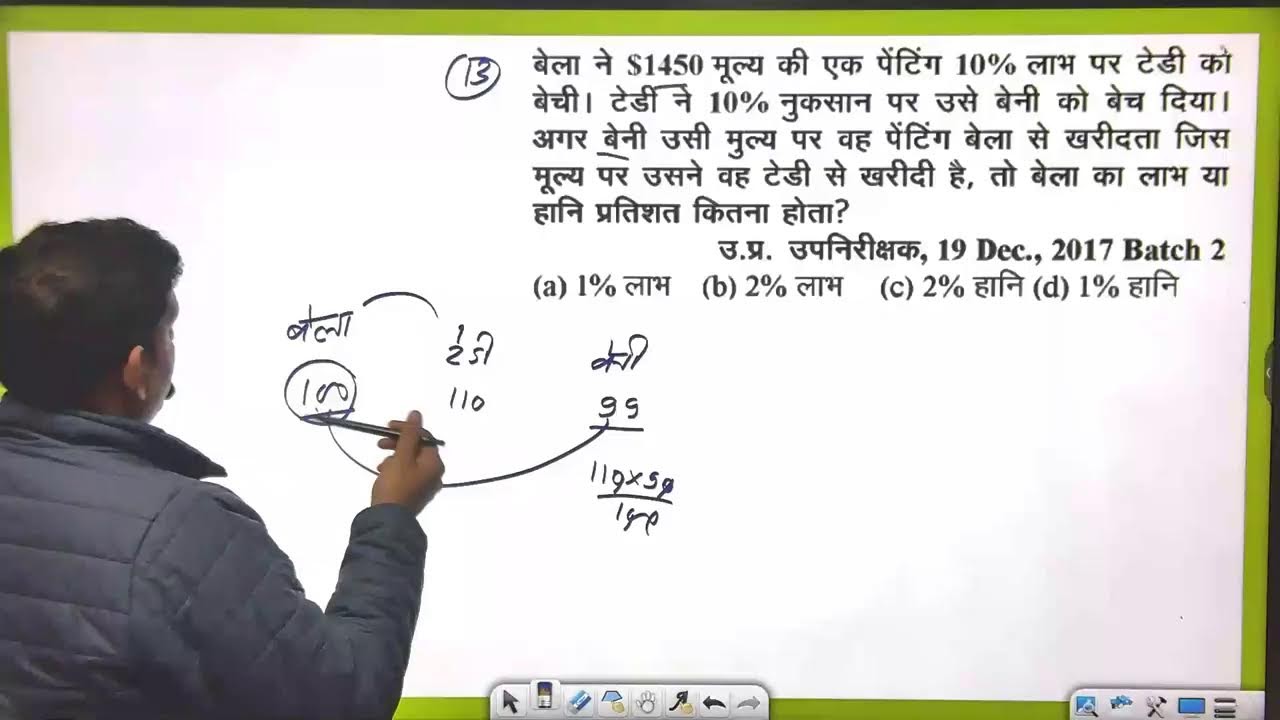 13
बेला ने $1450 मूल्य की एक पेंटिंग 10% लाभ पर टेडी को
बेची। टेडी ने 10% नुकसान पर उसे बेनी को बेच दिया।
अगर बेनी उसी मुल्य पर वह पेंटिंग बेला से खरीदता जिस
मूल्य पर उसने वह टेडी से खरीदी है, तो बेला का लाभ या
हानि प्रतिशत कितना होता?
उ.प्र. उपनिरीक्षक, 19 Dec., 2017 Batch 2
(a) 1% लाभ (b) 2% लाभ (c) 2% हानि (d) 1% हानि
बेला टेडी बेनी
100 110 99
110×90
100